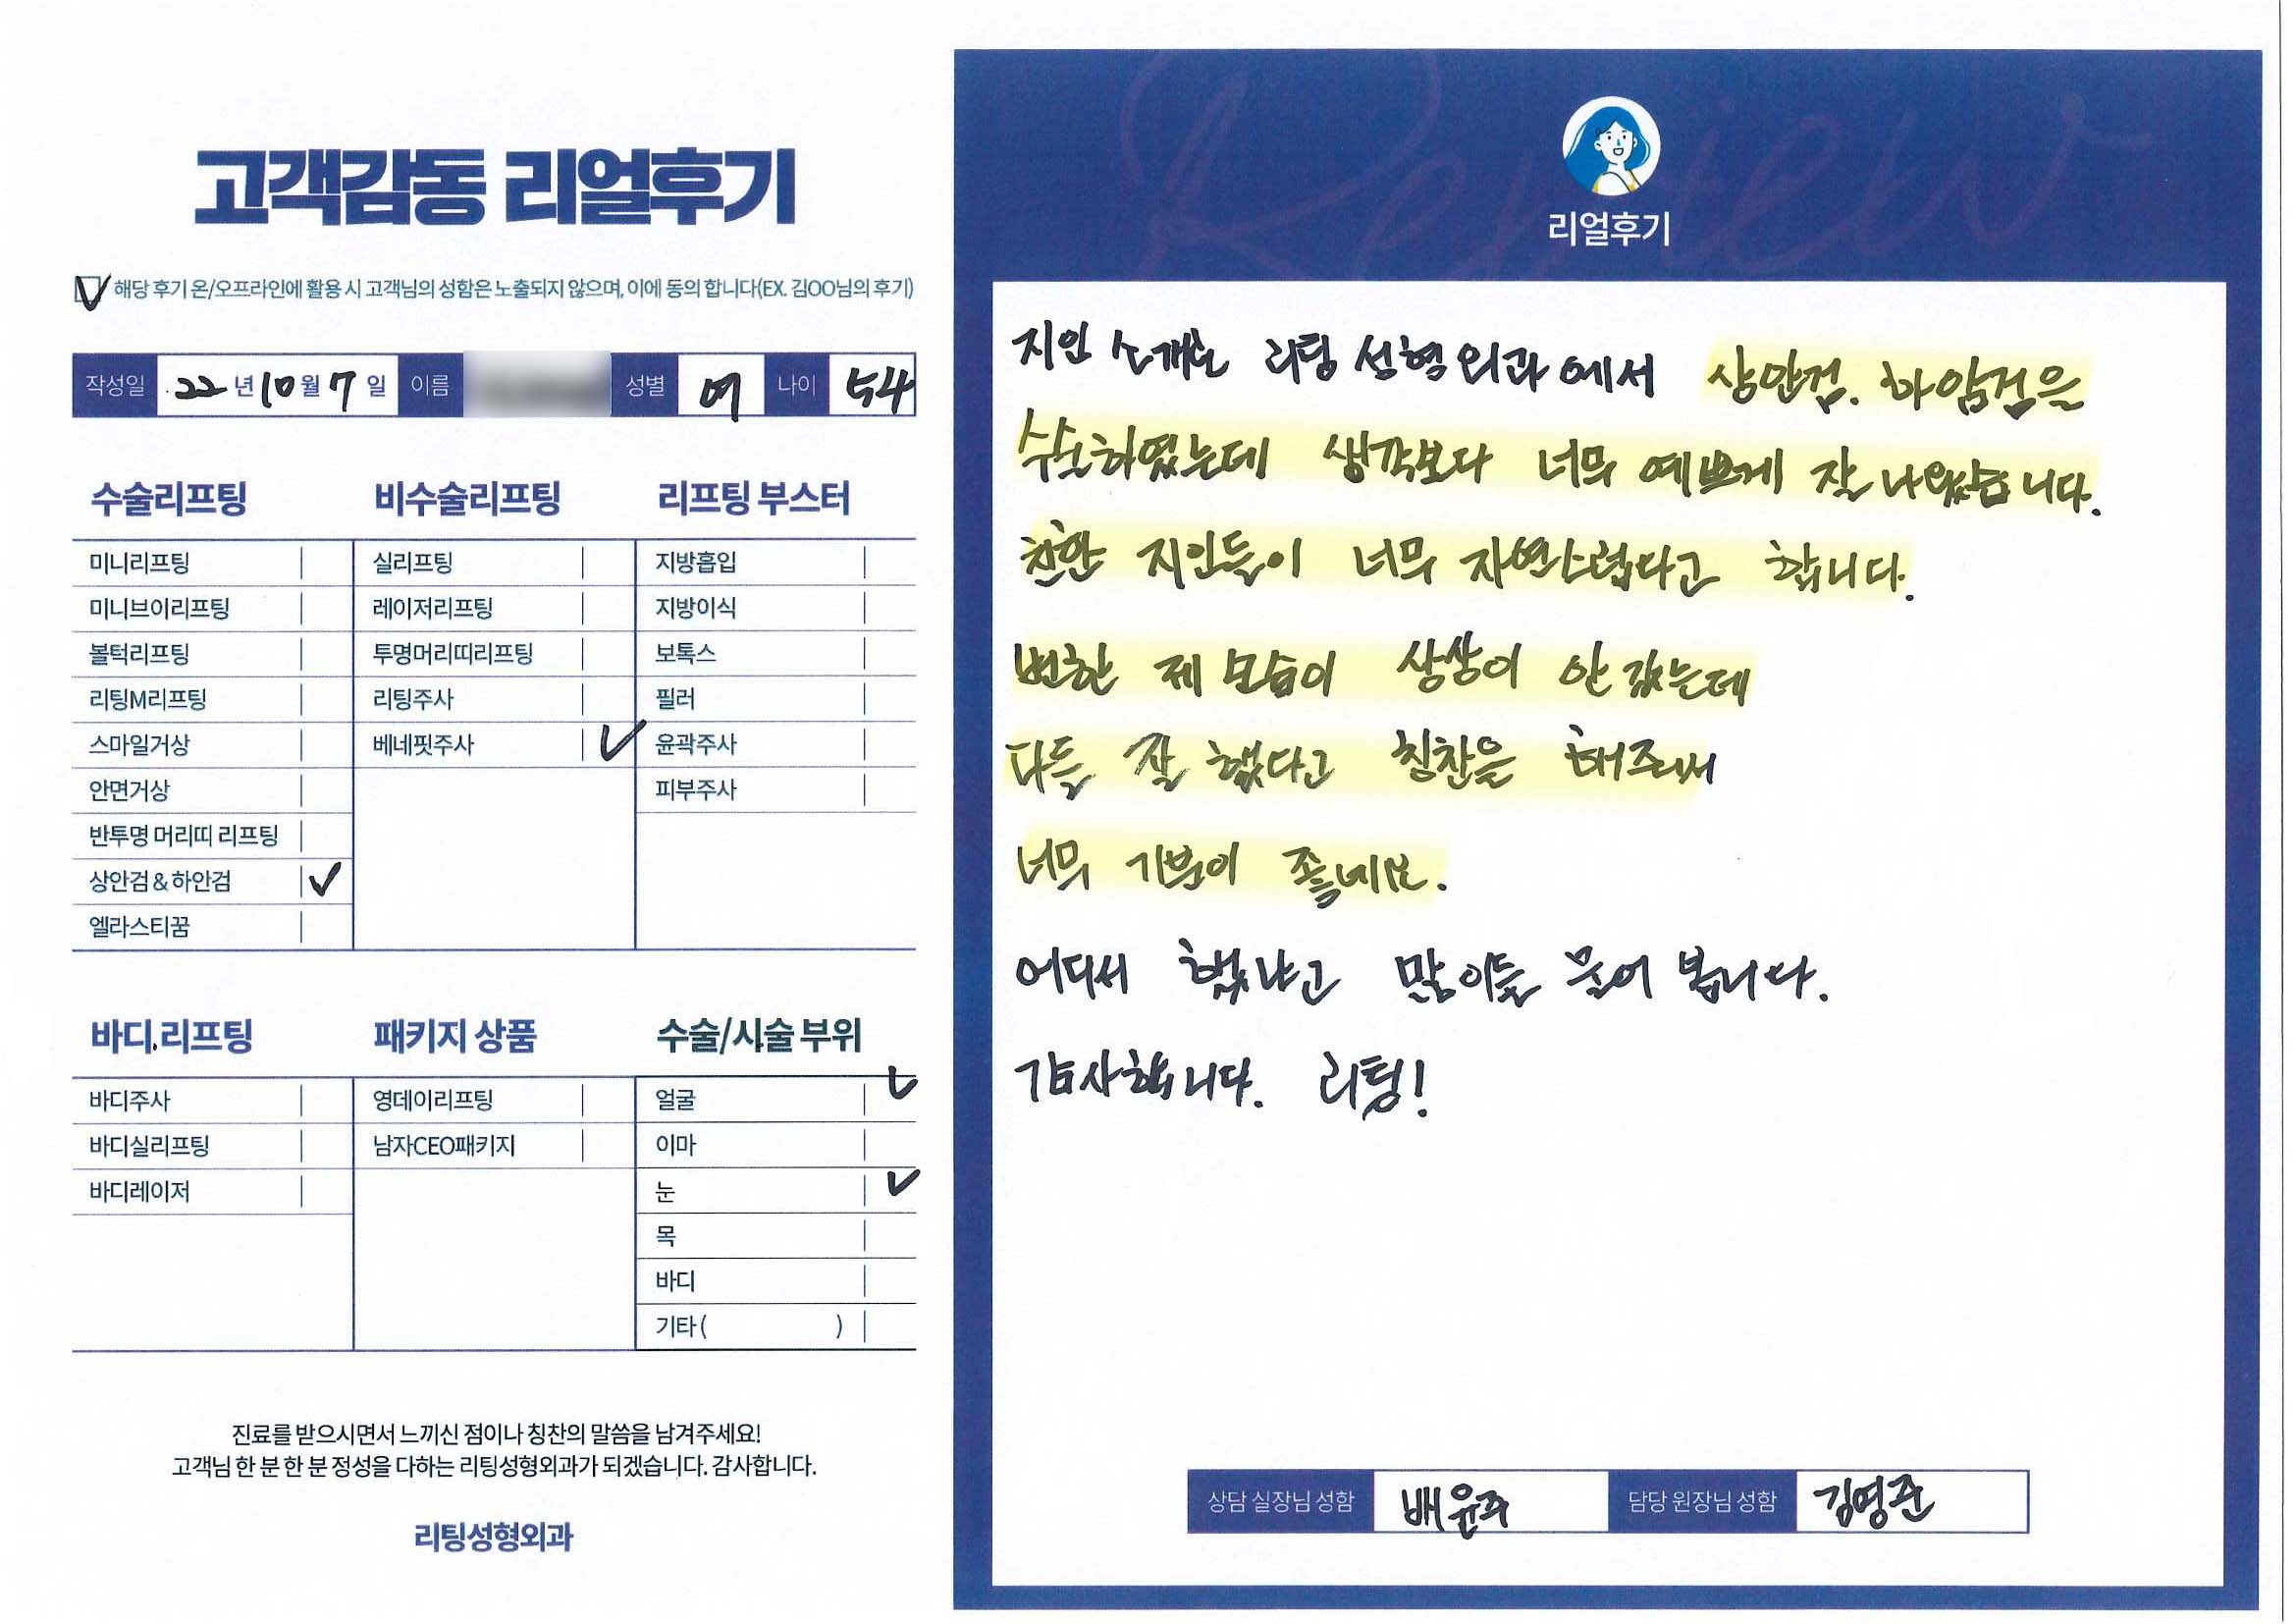 고객감동 리얼후기
해당 후기 온/오프라인에 활용 시 고객님의 성함은 노출되지 않으며, 이에 동의 합니다(EX. 김OO님의 후기)
작성일 22년 10월 7일 이름 성별 여 나이 54
수술리프팅
미니리프팅
미니브이리프팅
볼턱리프팅
리팅M리프팅
스마일거상
안면거상
반투명 머리띠 리프팅
상안검 & 하안검
엘라스티꿈
비수술리프팅
실리프팅
레이저리프팅
투명머리띠리프팅
리팅주사
베네핏주사
리프팅 부스터
지방흡입
지방이식
보톡스
필러
윤곽주사
피부주사
바디 리프팅
바디주사
바디실리프팅
바디레이저
패키지 상품
영데이리프팅
남자CEO패키지
수술/시술 부위
얼굴
이마
눈
목
바디
기타( )
진료를 받으시면서 느끼신 점이나 칭찬의 말씀을 남겨주세요!
고객님 한 분 한 분 정성을 다하는 리팅성형외과가 되겠습니다. 감사합니다.
리팅성형외과
Review
리얼후기
지인 소개로 리팅 성형외과에서 상안검. 하암검을
수술하였는데 생각보다 너무 예쁘게 잘 나왔습니다.
친한 지인들이 너무 자연스럽다고 합니다.
변한 제 모습이 상상이 안 갔는데
다들 잘 했다고 칭찬을 해주셔서
너무 기분이 좋네요.
어디서 했냐고 많이들 물어 봅니다.
감사합니다. 리팅!
상담 실장님 성함 배윤주 담당 원장님 성함 김영준